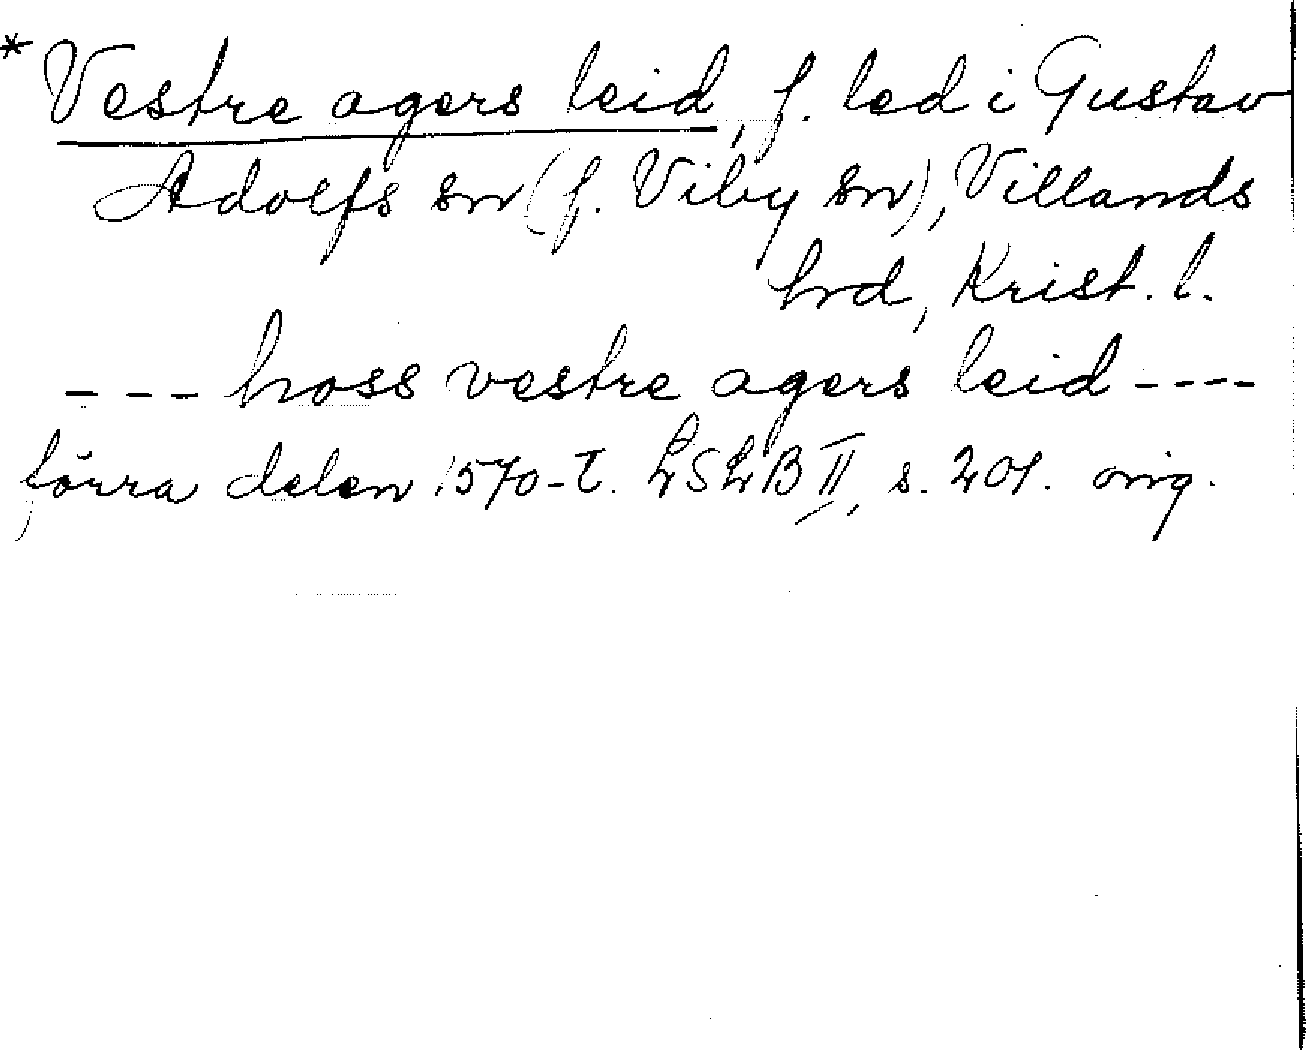 * Vestre agers leid, f. led i Gustav
Adolfs sn (f. Viby sn), Villands
hrd, Krist. l.
--- hoss vestre agers leid ----
förra delen 1570-t. LSLB II, s. 201. orig.